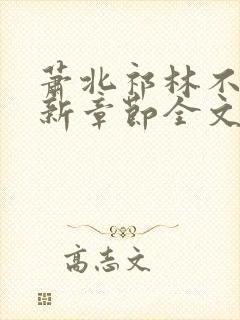 萧北祁林不
新章节全文
高志文